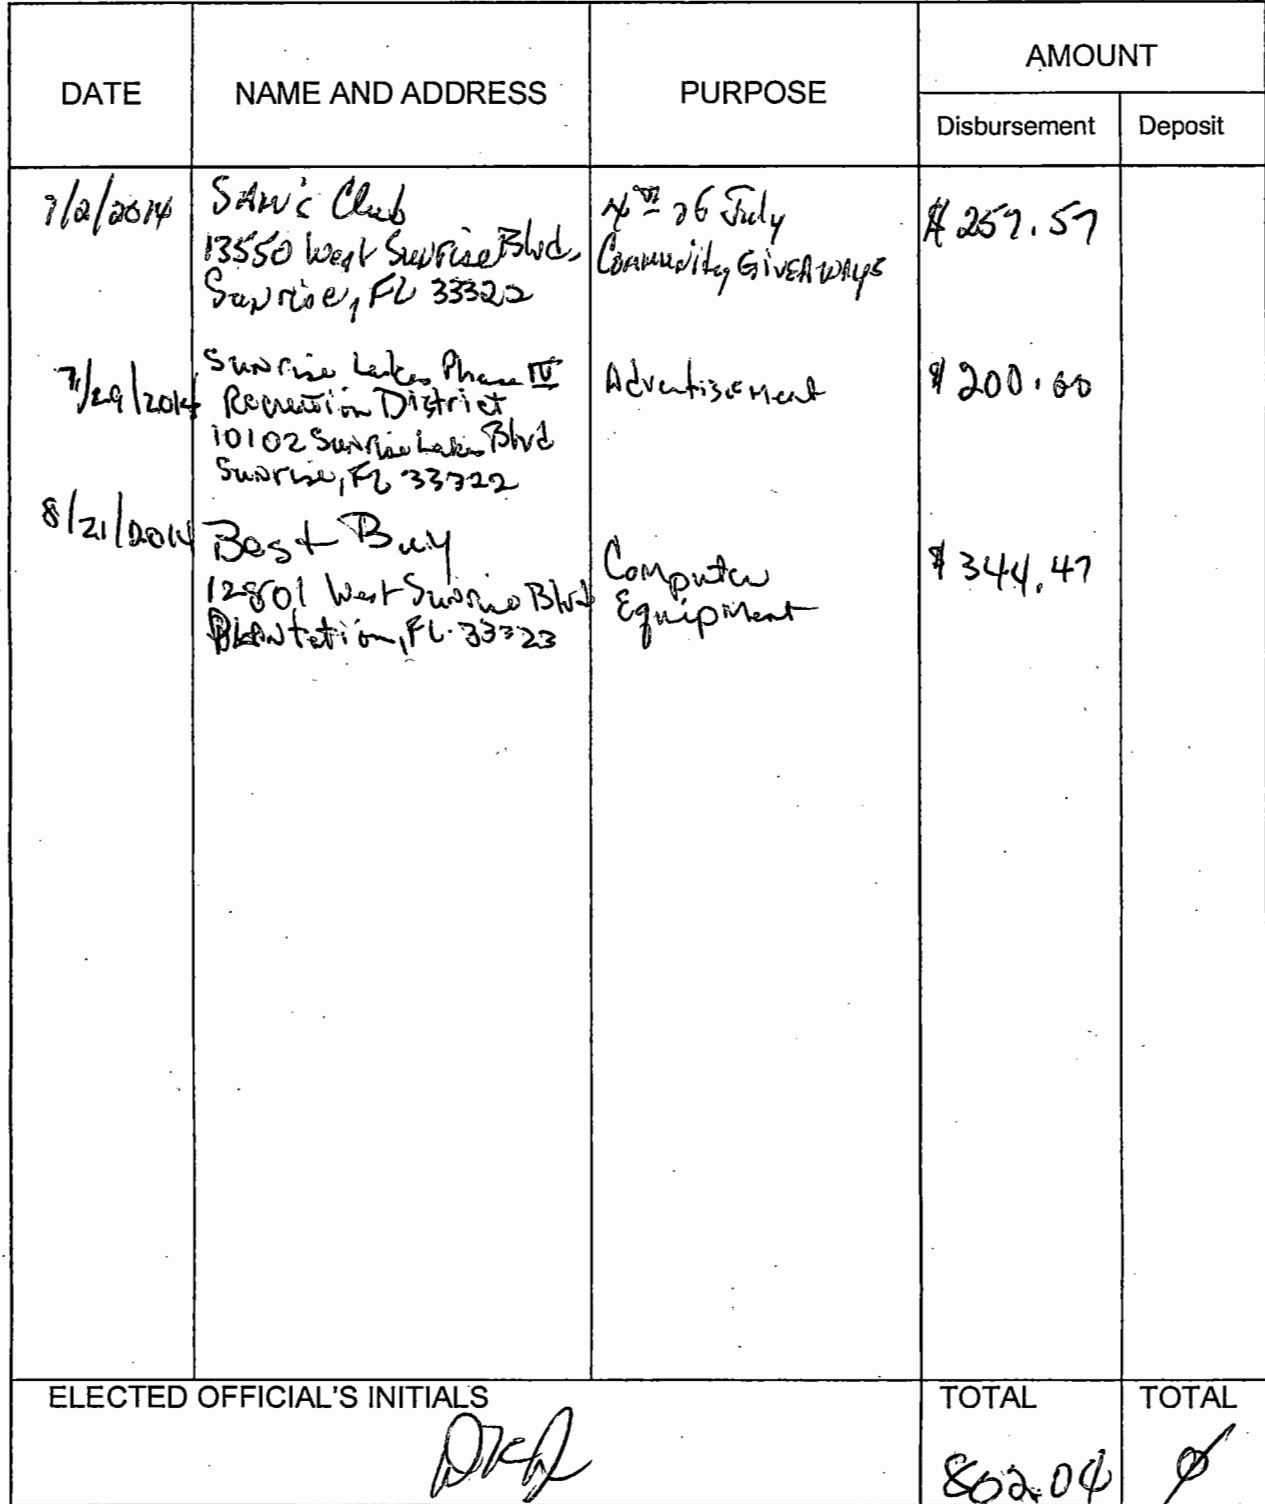 DATE
NAME AND ADDRESS
PURPOSE
AMOUNT
Disbursement
Deposit
7/2/2014
SAM's Club
13550 West Sunrise Blvd.
Sunrise, FL 33322
4th of July
Community GiveAways
$257.57
7/29/2014
Sunrise Lakes Phase IV
Recreation District
10102 Sunrise Lakes Blvd
Sunrise, FL 33322
Advertisement
$200.00
8/21/2014
Best Buy
12801 West Sunrise Blvd
Plantation, FL 33323
Computer
Equipment
$344.47
ELECTED OFFICIAL'S INITIALS
TOTAL
802.04
TOTAL
Ø